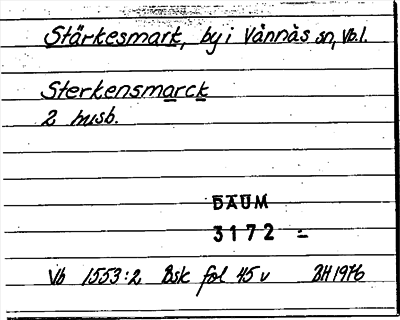 Stärkesmark, by i Vännäs sn, Vb.l.
Sterkensmarck
2 husb.
DAUM
3172 -
Vb 1553:2 Bsk fol 45 v BH 1976